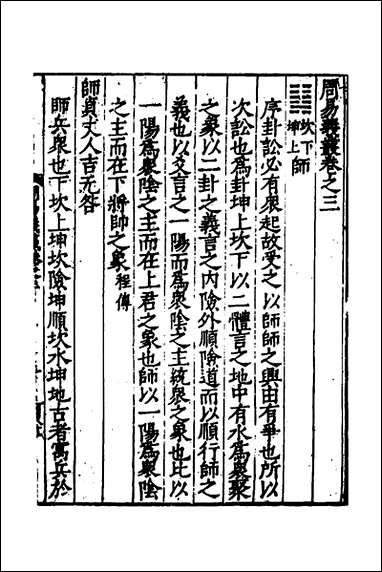 周易義叢卷之三
䷆坎下坤上師
序卦訟必有衆起故受之以師師之興由有爭也所以
次訟也爲卦坤上坎下以二體言之地中有水爲衆聚
之象以二卦之義言之內險外順險道而以順行師之
義也以爻言之一陽而爲衆陰之主統衆之象也比以
一陽爲衆陰之主而在上君之象也師以一陽爲衆陰
之主而在下將帥之象程傳
師貞丈人吉无咎
師兵衆也下坎上坤坎險坤順坎水坤地古者寓兵於